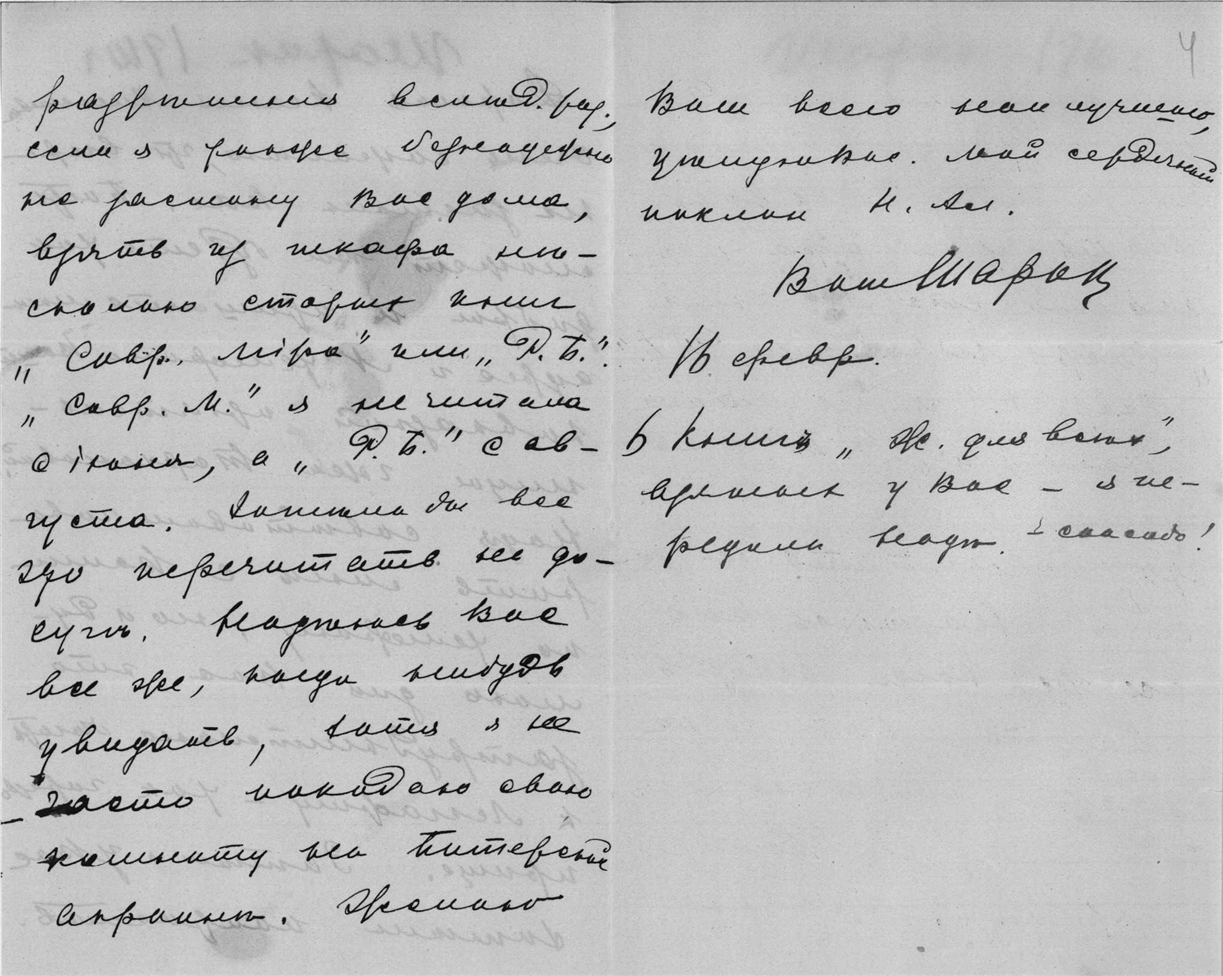 разрѣшенія всемД. раз.,
если я паче безнадежно
не застану Вас дома,
взять из шкафа нѣ-
сколько старых книг
„Совр. Міра" или „Р. Б.".
„Совр. М." я не читала
с іюня, а „Р. Б." с ав-
густа. Хотѣла бы все
это перечитать на до-
сугѣ. Надѣюсь Вас
все же, когда нибудь
увидать, хотя я не
часто покидаю свою
комнату на Питерской
окраинѣ. Желаю
4
Вам всего наилучшаго,
уважающая Вас. Мой сердечный
поклон Н. Ал.
Ваш Шарык
16 февр.
Книги „Ж. для всѣх",
взятыя у Вас – я пе-
редала Надѣ. – спасибо!